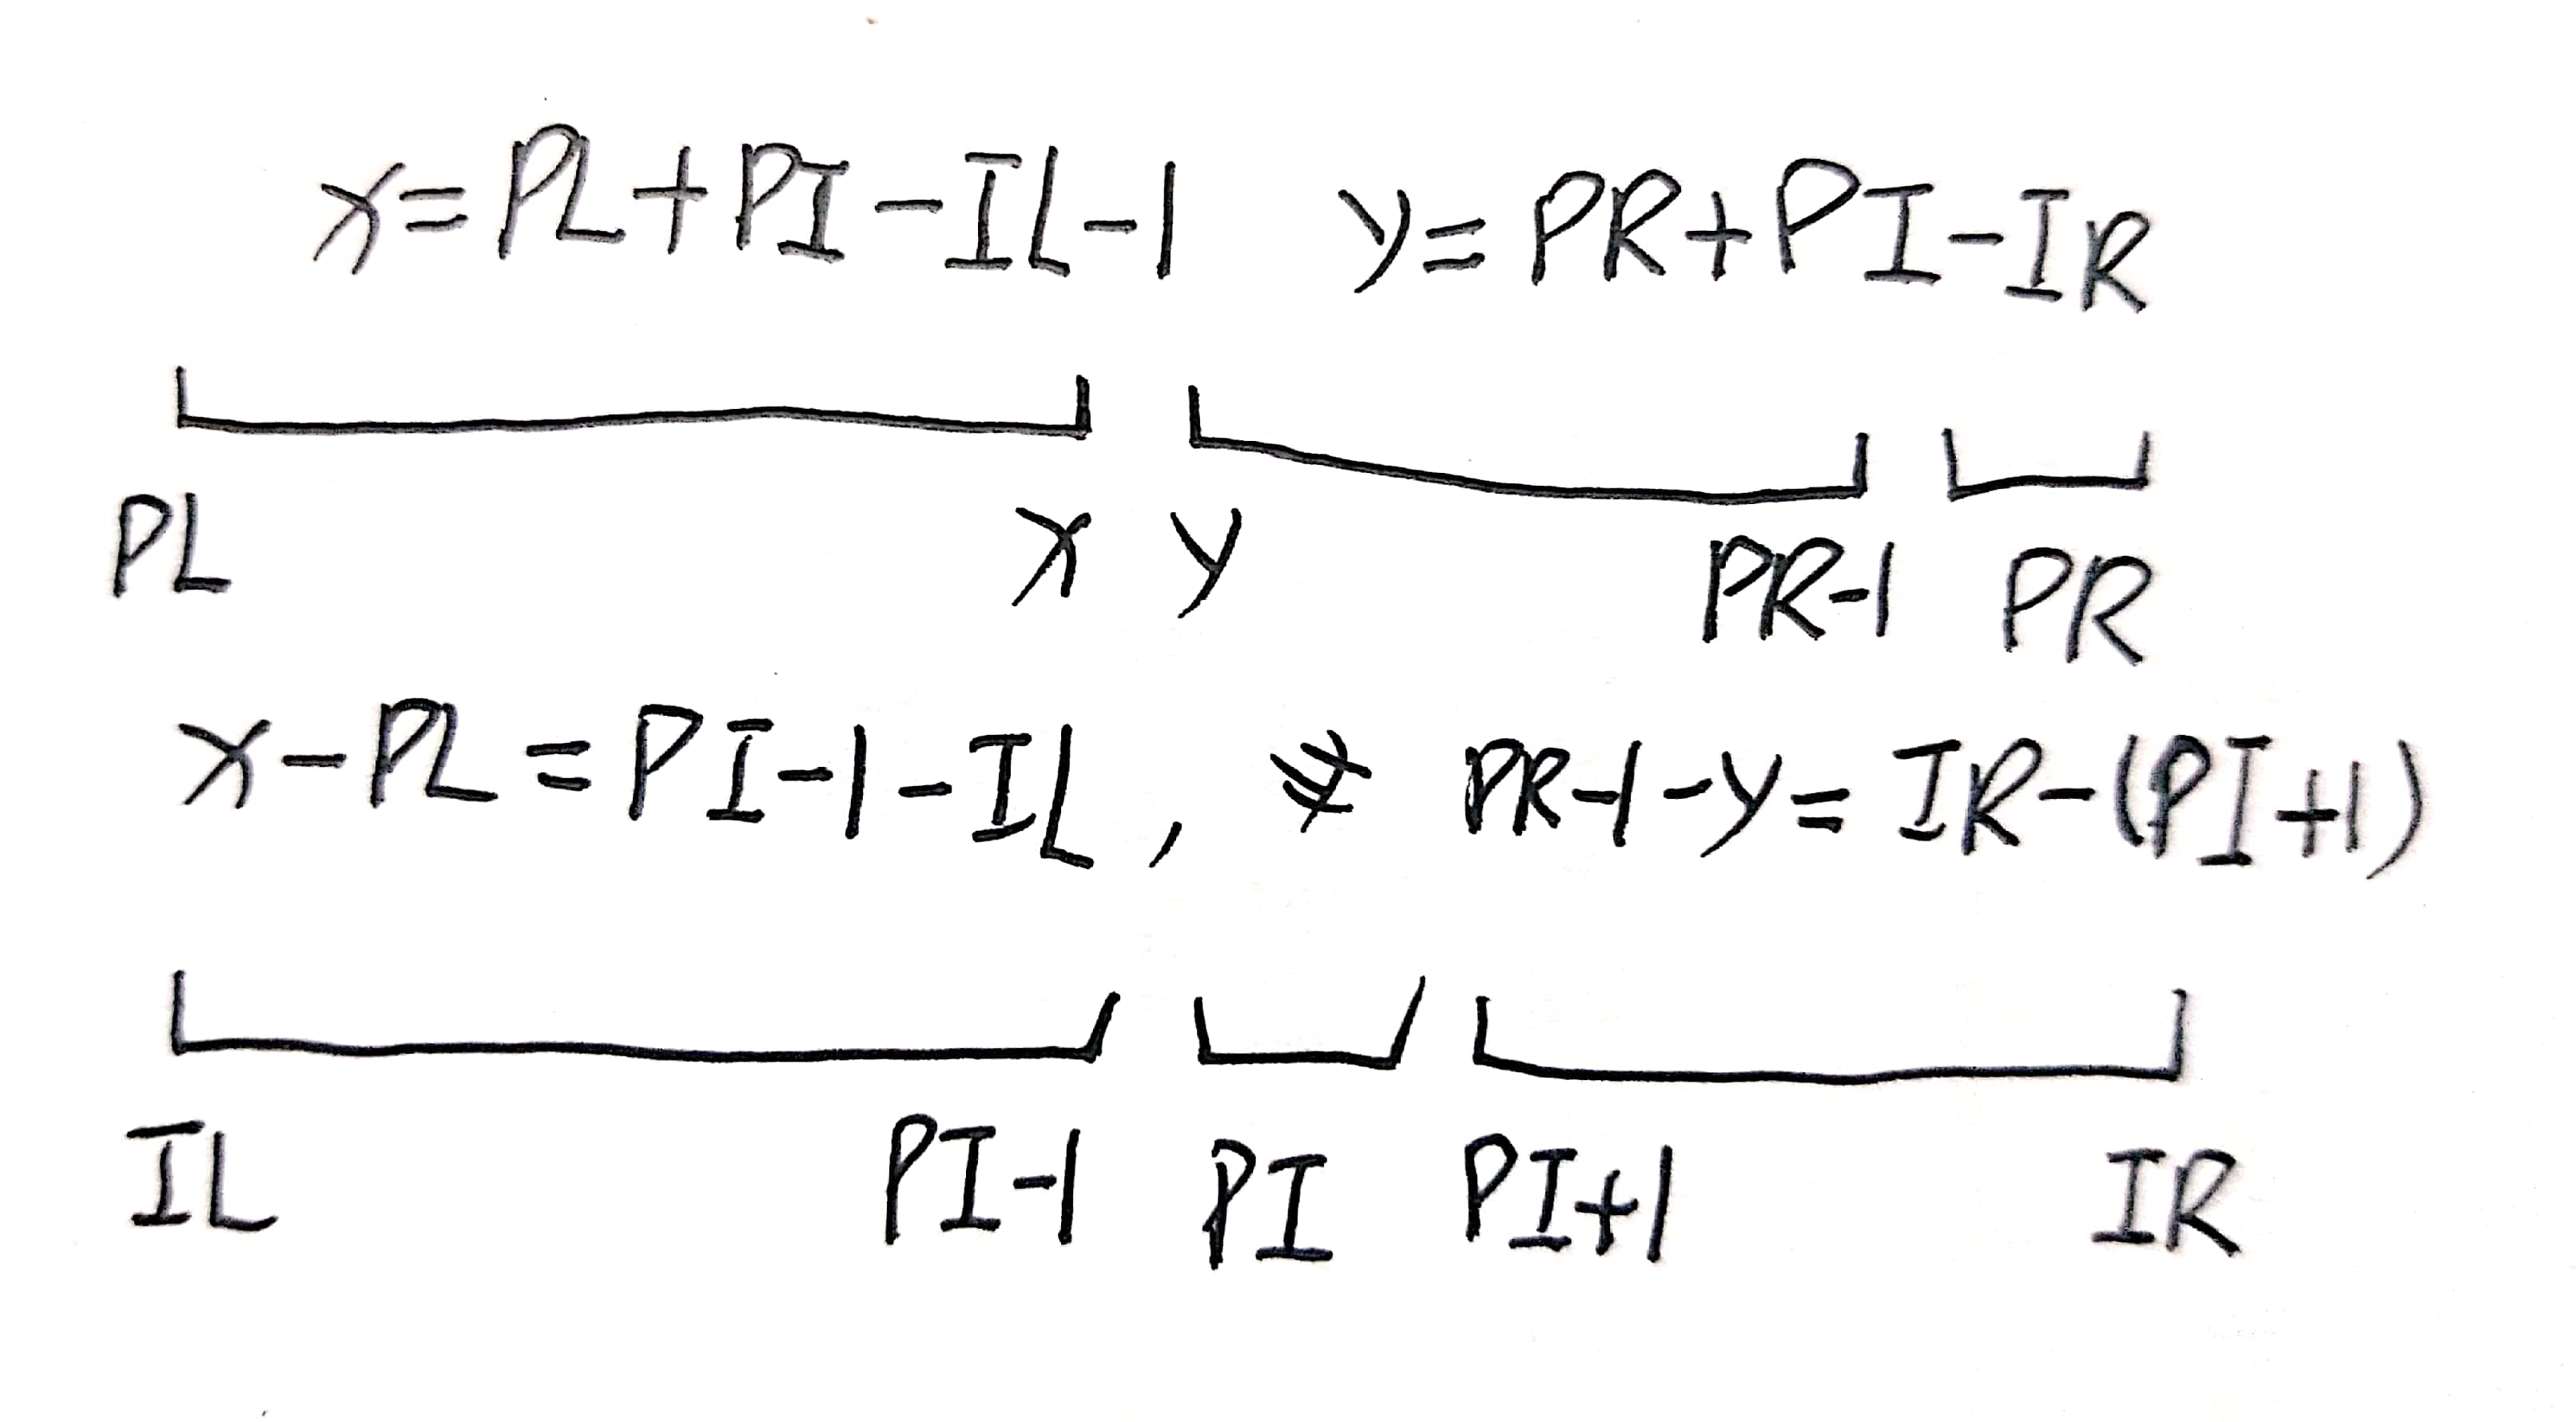 x=PL+PI-IL-1 y=PR+PI-IR
PL x y PR-1 PR
x-PL=PI-1-IL, PR-1-y=IR-(PI+1)
IL PI-1 PI PI+1 IR